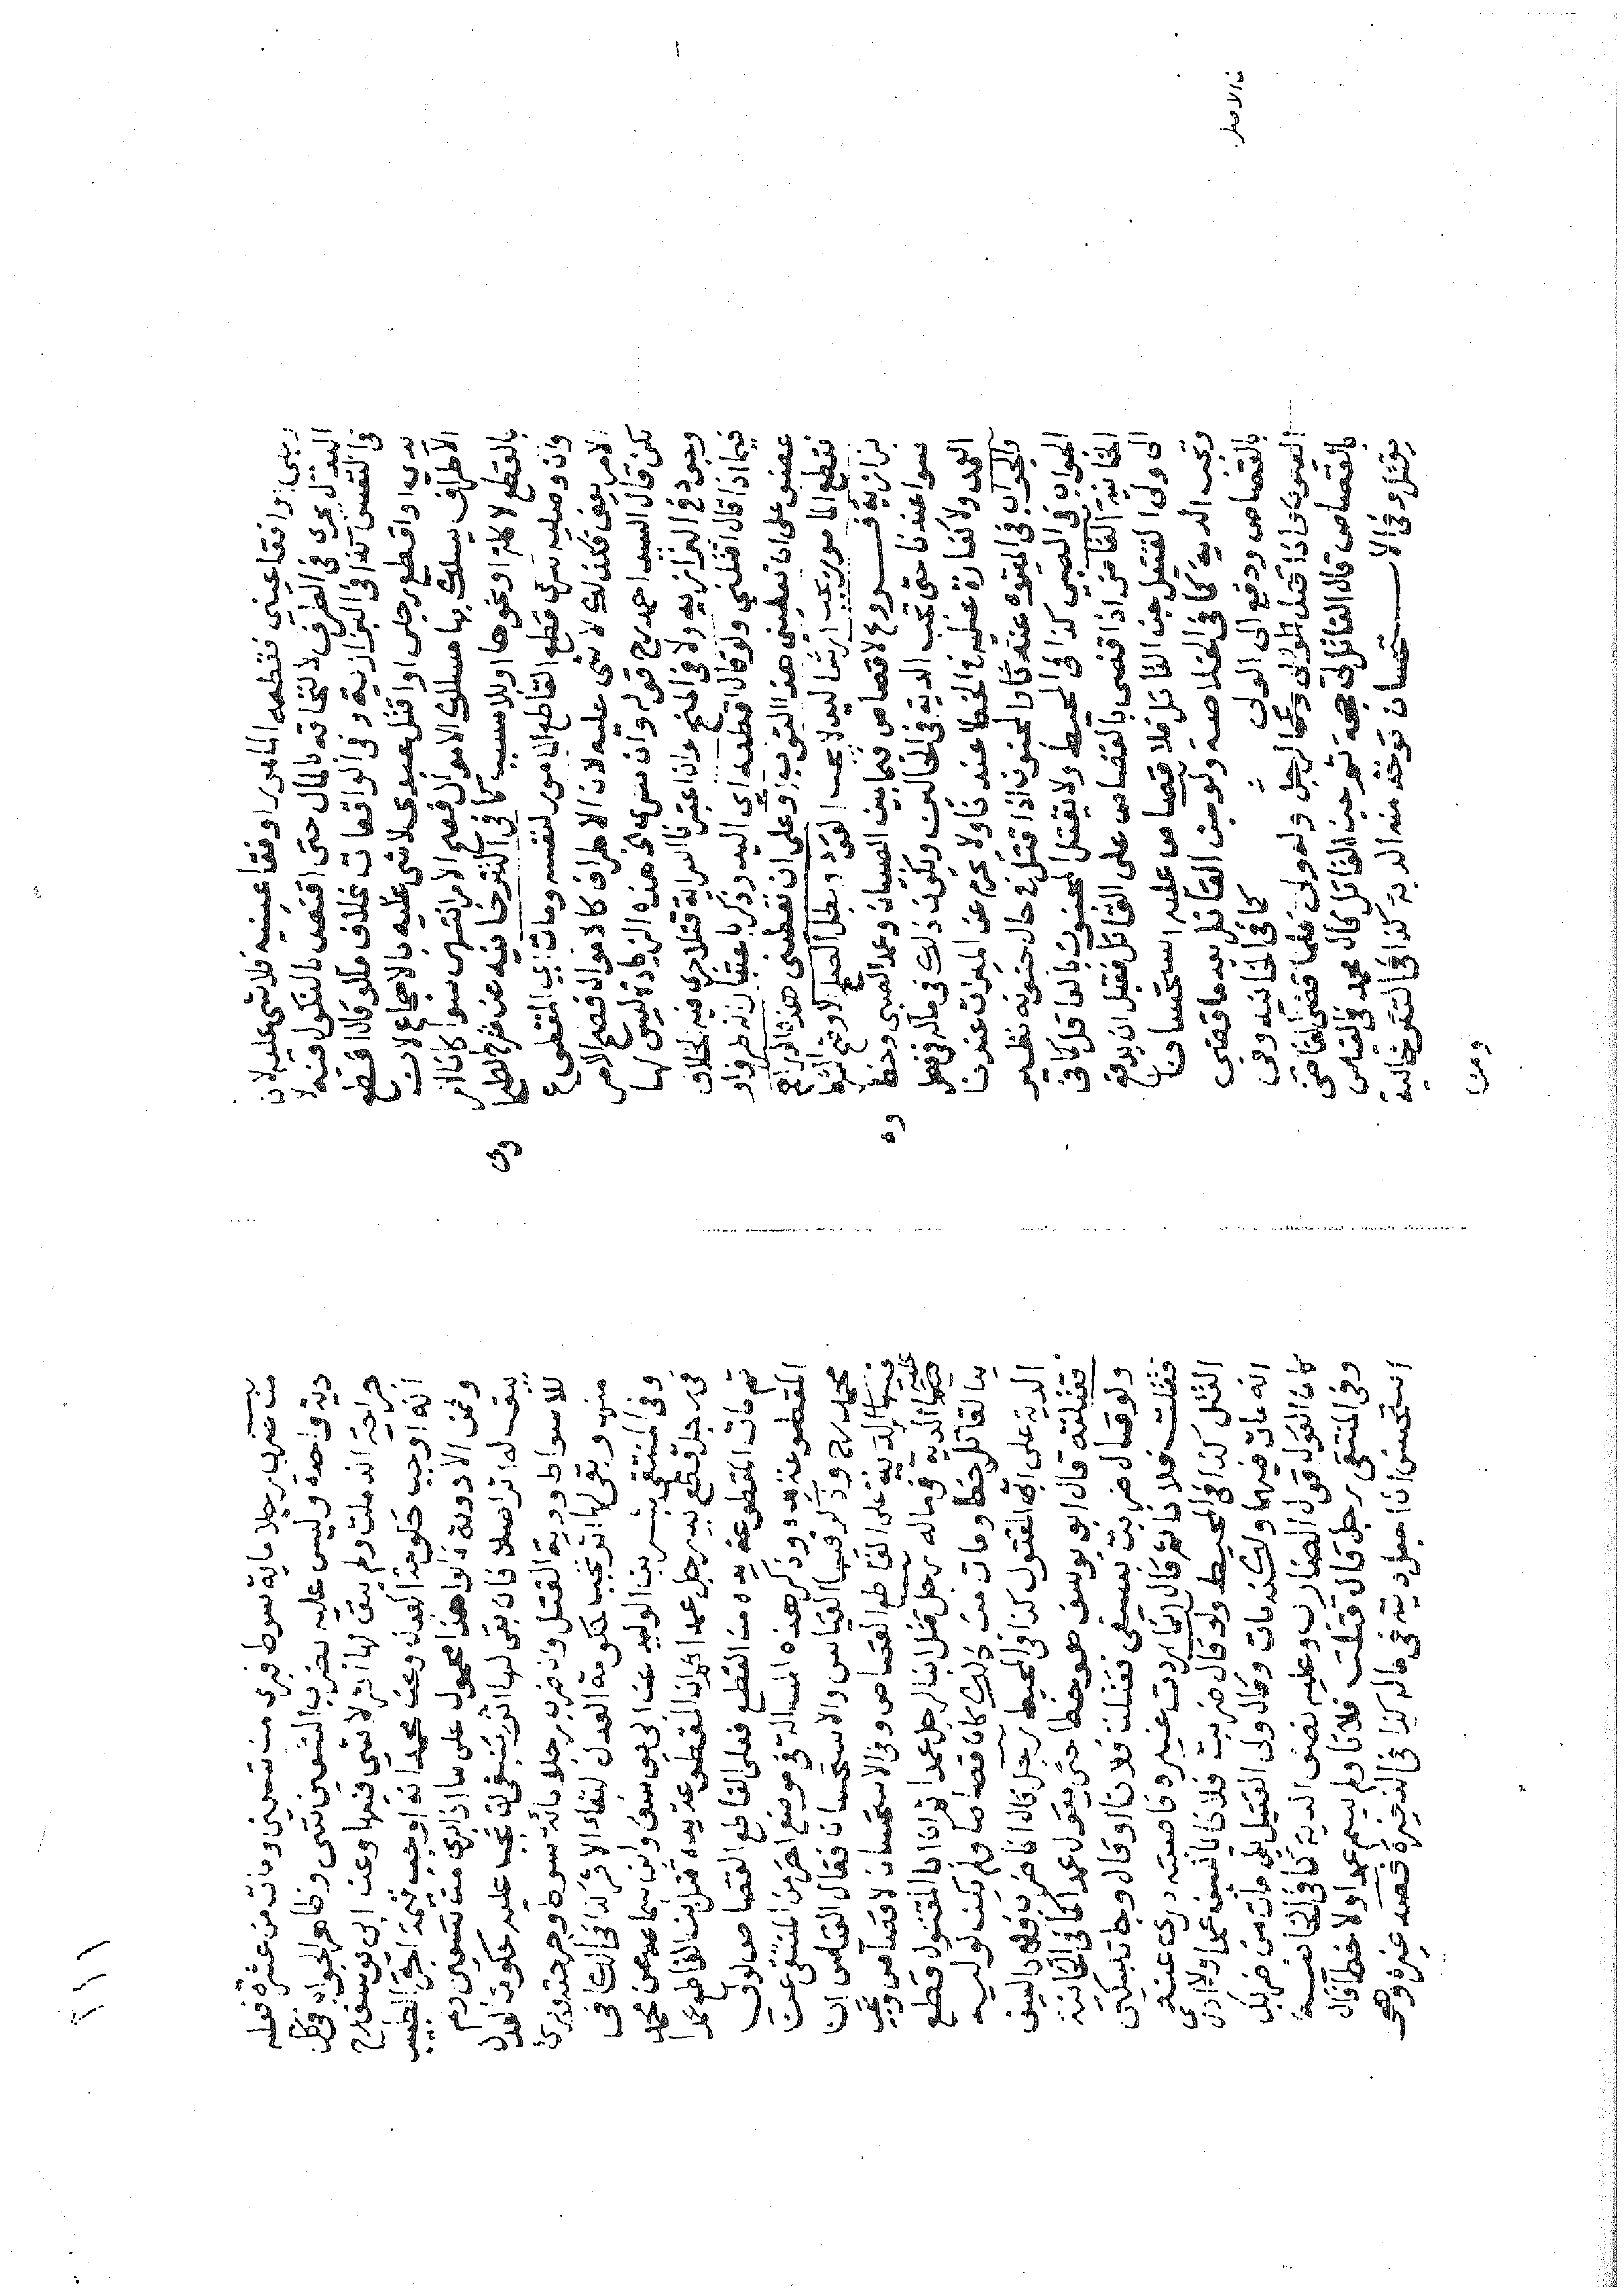 وافقا عينى فقطعه المامور او فقا عينيه فلا شى عليه لان
البدل يجرى فى الطرف لالتحاقه بالمال حتى اقتص بالنكول فيه لا
فى النفس كذا فى البزازية وفى الواقعات بخلاف ما لو قال اقطع
يدى او اقطع رجلى او اقتل عبدى لا شى عليه بالاجماع لان
الاطراف يسلك بها مسلك الاموال فصح الامر انتهى سوا كان الامر
بالقطع لاكلة او نحوها او بلا سبب كما فى التترخانيه عن شرح الطحا
وى
وان وصليه سرى قطع القاطع المامور لنفسه ومات اى المقطوع
الامر يعنى فكذلك لا شى عليه لان الاطراف كالاموال فصح الامر
لكن قال السيد احمد رح قوله وان سرى الخ هذه الزيادة ليس لها
وجود فى البزازيه ولا فى المنح وان اعتبرنا السراية قتلا جرى فيه الخلاف
فيما اذا قال اقتلنى ولو قال اقطعه اى اليد وذكر باعتبار انه طرف او
عضو على ان تعطينى هذا الثوب او على ان تعطينى هذه الدراهم
فقطع المامور يجب ارش اليد لا يجب القود وبطل الصلح لا وضح الشرط
بزازيه فــروع لا قصاص فيما بين الصبيان وعمد الصبى وخطا
وه
سوا عندنا حتى تجب الدية فى الحالين ويكون ذلك فى ماله فى فصل
العمد ولا كفارة عليه فى الخطا عندنا ولا يحرم عن الميراث عندنا
والجواب فى المعتوه عندنا والمجنون اذا قتل فى حال جنونه نظير
الجواب فى الصبى كذا فى المحيط ولا يقتل المجنون بالعاقل كما فى
الخانية القاضى اذا قضى بالقصاص على القاتل فقبل ان يدفع
الى ولى القتيل جن القاتل فلا قصاص عليه استحسانا
وتجب الدية كما فى الخلاصة ولو جن القاتل بعد ما قضى
بالقصاص ودفع الى الولى كما فى الخانيه وفى
العيون واذا قتل الرجل وله ولى فلما قضى القاضى
بالقصاص قال القاتل لى حجة ثم جن القاتل قال محمد فى القياس
يقتل وفى الاستحسان توخذ منه الدية كذا فى التترخانيه
ومن
من ضرب رجلا مايه سوط فبرى من تسعين ومات من عشرة فعليه
دية واحدة وليس عليه بضرب التسعين شى وظاهر الجواب فى كل
جراحة اندملت ولم يبق لها اثر لا شى فيها وعن ابى يوسف رح
انه اوجب حكومة العدل وعن محمد انه اوجب قيمة اجرة الطبيب
وثمن الادوية قالوا هذا محمول على ما اذا برى من تسعين ولم
يبق له اثر اصلا فان بقى لها اثر ينبغى ان تجب عليه حكومة العدل
للاسواط ودية القتل وان ضرب رجلا مائة سوط وجرحته وبرئ
منه وبقى لها اثر تجب حكومة العدل لبقاء الاثر كذا فى الكافى
وفى المنتقى بشر بن الوليد عن ابى يوسف وابن سماعه عن محمد
فى رجل قطع يد رجل عمدا ثم ان المقطوعة يده قتل ابن القاطع عمدا
ثم مات المقطوعة يده من القطع فعلى القاطع القصاص لولى
المقطوعة يده وذكر هذه المسالة فى موضع اخر من المنتقى عن
محمد رح وذكر فيها القياس والاستحسان فقال القياس ان
فيه الدية على القاطع القصاص وفى الاستحسان لا قصاص وتجب
عليه الدية فى ماله رجل قتل ابنا لرجل عمدا ثم ان ابا المقتول قطع
يد القاتل خطا ومات من ذلك كان قصاصا ولم يكن لوليه
الدية على اب المقتول كذا فى المحيط رجل قال انا ضربت فلانا بالسيف
فقتلته قال ابو يوسف هو خطا حتى يقول عمدا كما فى الخانية
ولو قال ضربت بسيفى فقتلت فلانا او قال وجات بسكين
فقتلت فلانا ثم قال انما اردت غيره فاصبته درى عنه
القتل كذا فى المحيط ولو قال ضربت فلانا بالسيف عمدا ولا ادرى
انه مات منها ولكنه مات وقال ولى القتيل بل مات من ضربك
كان القول قول الضارب وعليه نصف الدية كما فى الخانيه
وفى المنتقى رجل قال قتلت فلانا ولم يسم عمدا ولا خطا قال
استحسن ان اجعل ديته فى ماله كذا فى الذخيرة قصد غيره وهى